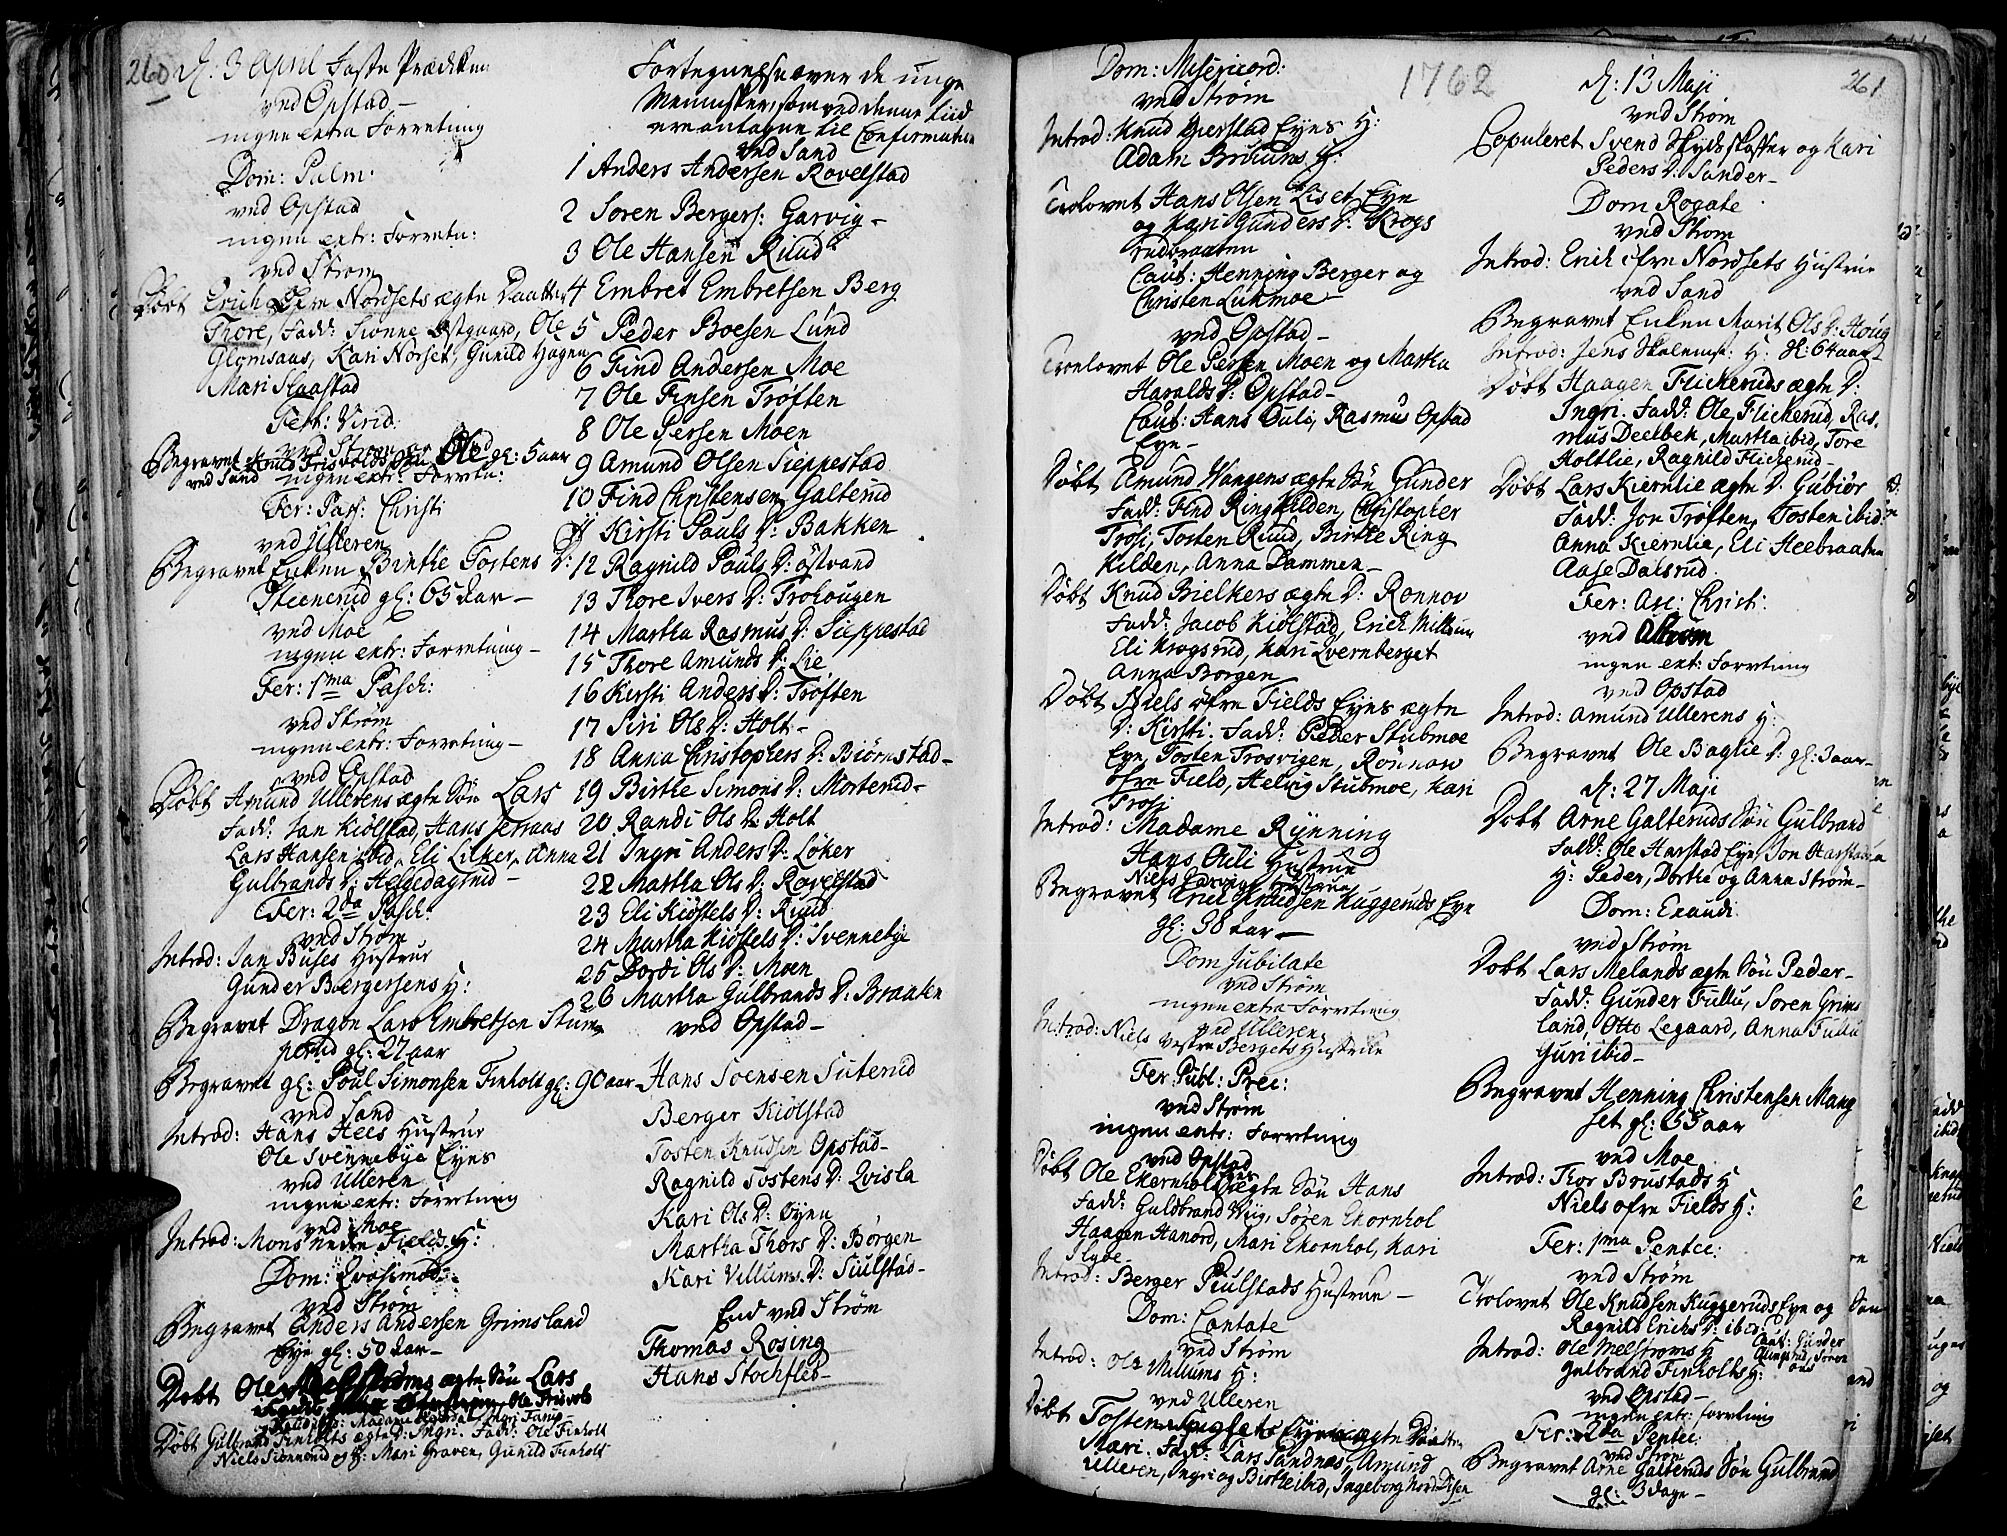 260 d: 3 April Faste Prædiken
ved Opstad –
ingen extra Forretning
Dom: Palm:
ved Opstad
ingen extr: Forretn:
ved Strøm
Døbt Erich Øfre Nordsets ægte Daatter
Thore, Fadd: Siønne Østgaard, Ole
Glomsaas, Kari Norset, Gunild Hagen
Mari Slaastad
Feb: Virid:
ved Strøm
Begravet Knud Trisvolds Søn Ole gl: 5 aar
ved Sand ingen extr: Forretn:
Fer: Pass: Christi
ved Ulleren
Begravet Enken Birthe Tostens D:
Steenerud gl: 65 aar –
ved Moe
ingen extr: Forretning –
Fer: 1ma Pasch:
ved Strøm
ingen extr: Forretning –
ved Opstad
Døbt Amund Ullerens ægte Søn Lars
Fadd: Jan Kiølstad, Hans
Lars Hansen ibid, Eli Lilker, Anna
Gulbrands D: Helgedagsrud –
Fer: 2da Pasch:
ved Strøm
Introd: Jan Buses Hustrue
Gunder Børgersens H:
Begravet Dragon Lars Embretsen Stum
perud gl: 27 aar
Begravet gl: Poul Simonsen Finholt gl: 90 aar
ved Sand
Introd: Hans Hees Hustrue
Ole Svennebye Eyes
ved Ulleren
ingen extr: Forretning
ved Moe
Introd: Mons nedre Fields H:
Dom: Qvasimod:
ved Strøm
Begravet Anders Andersen Grimsland
Eye gl: 50 aar –
Døbt Ole Melstrøms ægte Søn Lars
Døbt Gulbrand Finholts ægte D: Ingri. Fadd: Ole Finholt
Niels Siønnerud og H: Mari Graven, Gunild Finholt
Fortegnelse over de unge
Mennisker, som ved denne tiid
ere antagne til Confirmation
ved Sand
1 Anders Andersen Rovelstad
2 Soren Bergers: Garvig –
3 Ole Hansen Ruud
4 Embret Embretsen Berg
5 Peder Boesen Lund
6 Find Andersen Moe
7 Ole Finsen Trøften
8 Ole Persen Moen
9 Amund Olsen Sieppestad
10 Find Christensen Galterud
11 Kirsti Pauls D: Bakken
12 Ragnild Pauls D: Østvand
13 Thore Ivers D: Trohougen
14 Martha Rasmus D: Sieppestad
15 Thore Amunds D: Lie
16 Kirsti Anders D: Trøften
17 Siri Ols D: Holt –
18 Anna Christophers D: Biørnstad –
19 Birthe Simons D: Morterud –
20 Randi Ols D: Holt
21 Ingri Anders D: Løker
22 Martha Ols D: Rovelstad
23 Eli Kiøstels D: Ruud
24 Martha Kiøstels D: Svennebye
25 Dordi Ols D: Moen
26 Martha Gulbrands D: Braaten
ved Opstad –
Hans Soensen Suterud
Berger Kiølstad
Tosten Knudsen Opstad –
Ragnild Tostens D: Qvisla
Kari Ols D: Øyen
Martha Thors D: Børgen
Kari Villums D: Siulstad –
End ved Strøm
Thomas Rosing
Hans Stochfleb –
Dom: Misericord:
1762
ved Strøm
Introd: Knud Gierstad Eyes H:
Adam Bruuns H:
Trolovet Hans Olsen Liset Eye
og Kari Gunders D: Krogs
rudbraaten
Caut: Henning Berger og
Christen Lukmoe –
ved Opstad –
Troelovet Ole Persen Moen og Martha
Haralds D: Opstad –
Caut: Hans Ouli, Rasmus Opstad
Eye –
Døbt Amund Wangens ægte Søn Gunder
Fadd: Find Ringkilden, Christopher
Trosi, Tosten Ruud, Birthe Ring
kilden, Anna Dammen –
Døbt Knud Bielkers ægte D: Ronnov
Fadd: Jacob Kiølstad, Erich Millum
Eli Krogsrud, Kari Qvernberget
Anna Borgen
Døbt Niels øfre Fields Eyes ægte
D: Kirsti. Fadd: Peder Stubmoe
Eye, Tosten Trosvigen, Rønnow
øfre Field, Helvig Stubmoe, Kari
Trosi
Introd: Madame Rynning
Hans Ouli Hustrue
Niels Garvigs Hustrue
Begravet Erich Knudsen Kuggeruds Eye
gl: 38 aar –
Dom Jubilate
ved Strøm
ingen extra Forretning
ved Ulleren
Introd: Niels vestre Bergets Hustrue
Fer: Publ: Prec:
ved Strøm
ingen extr: Forretning
ved Opstad
Døbt Ole Ekornhols ægte Søn Hans
Fadd: Guldbrand Wiig, Søren Ekornhol
Haagen Hanord, Mari Ekornhol, Kari
Introd: Berger Siulstads Hustrue –
Dom: Cantate
ved Strøm
Introd: Ole Millums H:
ved Ulleren
Døbt Tosten Eyes ægte Daatter
Mari. Fadd: Lars Sandnæs, Amund
Ulleren, Ingri og Birthe ibid, Ingeborg Nord Disen
261
d: 13 Maji
ved Strøm
Copuleret Svend Skydsskaffer og Kari
Peders D: Sander –
Dom Rogate
ved Strøm
Introd: Erich øfre Nordsets Hustrue
ved Sand
Begravet Enken Marit Ols D: Houg
Introd: Jens H: gl: 64 aar
Døbt Haagen Flicheruds ægte D:
Ingri. Fadd: Ole Flicherud, Ras
mus Deelbek, Martha ibid, Tore
Holtlie, Ragnild Flicherud –
Døbt Lars Kiernlie ægte D: Gubiør
Fadd: Jon Trøften, Tosten ibid:
Anna Kiernlie, Eli Heebraaten
Aase Dalsrud
Fer: Asc: Christi:
ved Strøm
ingen ext: Forretning
ved Opstad
Introd: Amund Ullerens H:
Begravet Ole Baglie D: gl: 3 aar –
d: 27 Maji
Døbt Arne Galteruds Søn Gulbrand
Fadd: Ole Harstad Eye, Jon Harstad
H: Peder, Dorthe og Anna Strøm –
Dom: Exaudi
ved Strøm
Døbt Lars Melands ægte Søn Peder –
Fadd: Gunder Fullu, Soren Grims
land, Otto Legaard, Anna Fullu
Guri ibid –
Begravet Henning Christensen Mang
set gl: 65 aar
ved Moe
Introd: Thor Brustads H
Niels øfre Fields H:
Fer: 1ma Pentec:
ved Strøm
Trolovet Ole Knudsen Kuggeruds Eye og
Ragnild Erichs D: ibid
Introd: Ole Melstrøms H
Gulbrand Finholts H:
ved Opstad –
ingen extr: forretning
Fer: 2da Pentec:
ved Strøm
Begravet Arne Galteruds Søn Gulbrand
gl: 3 dage –